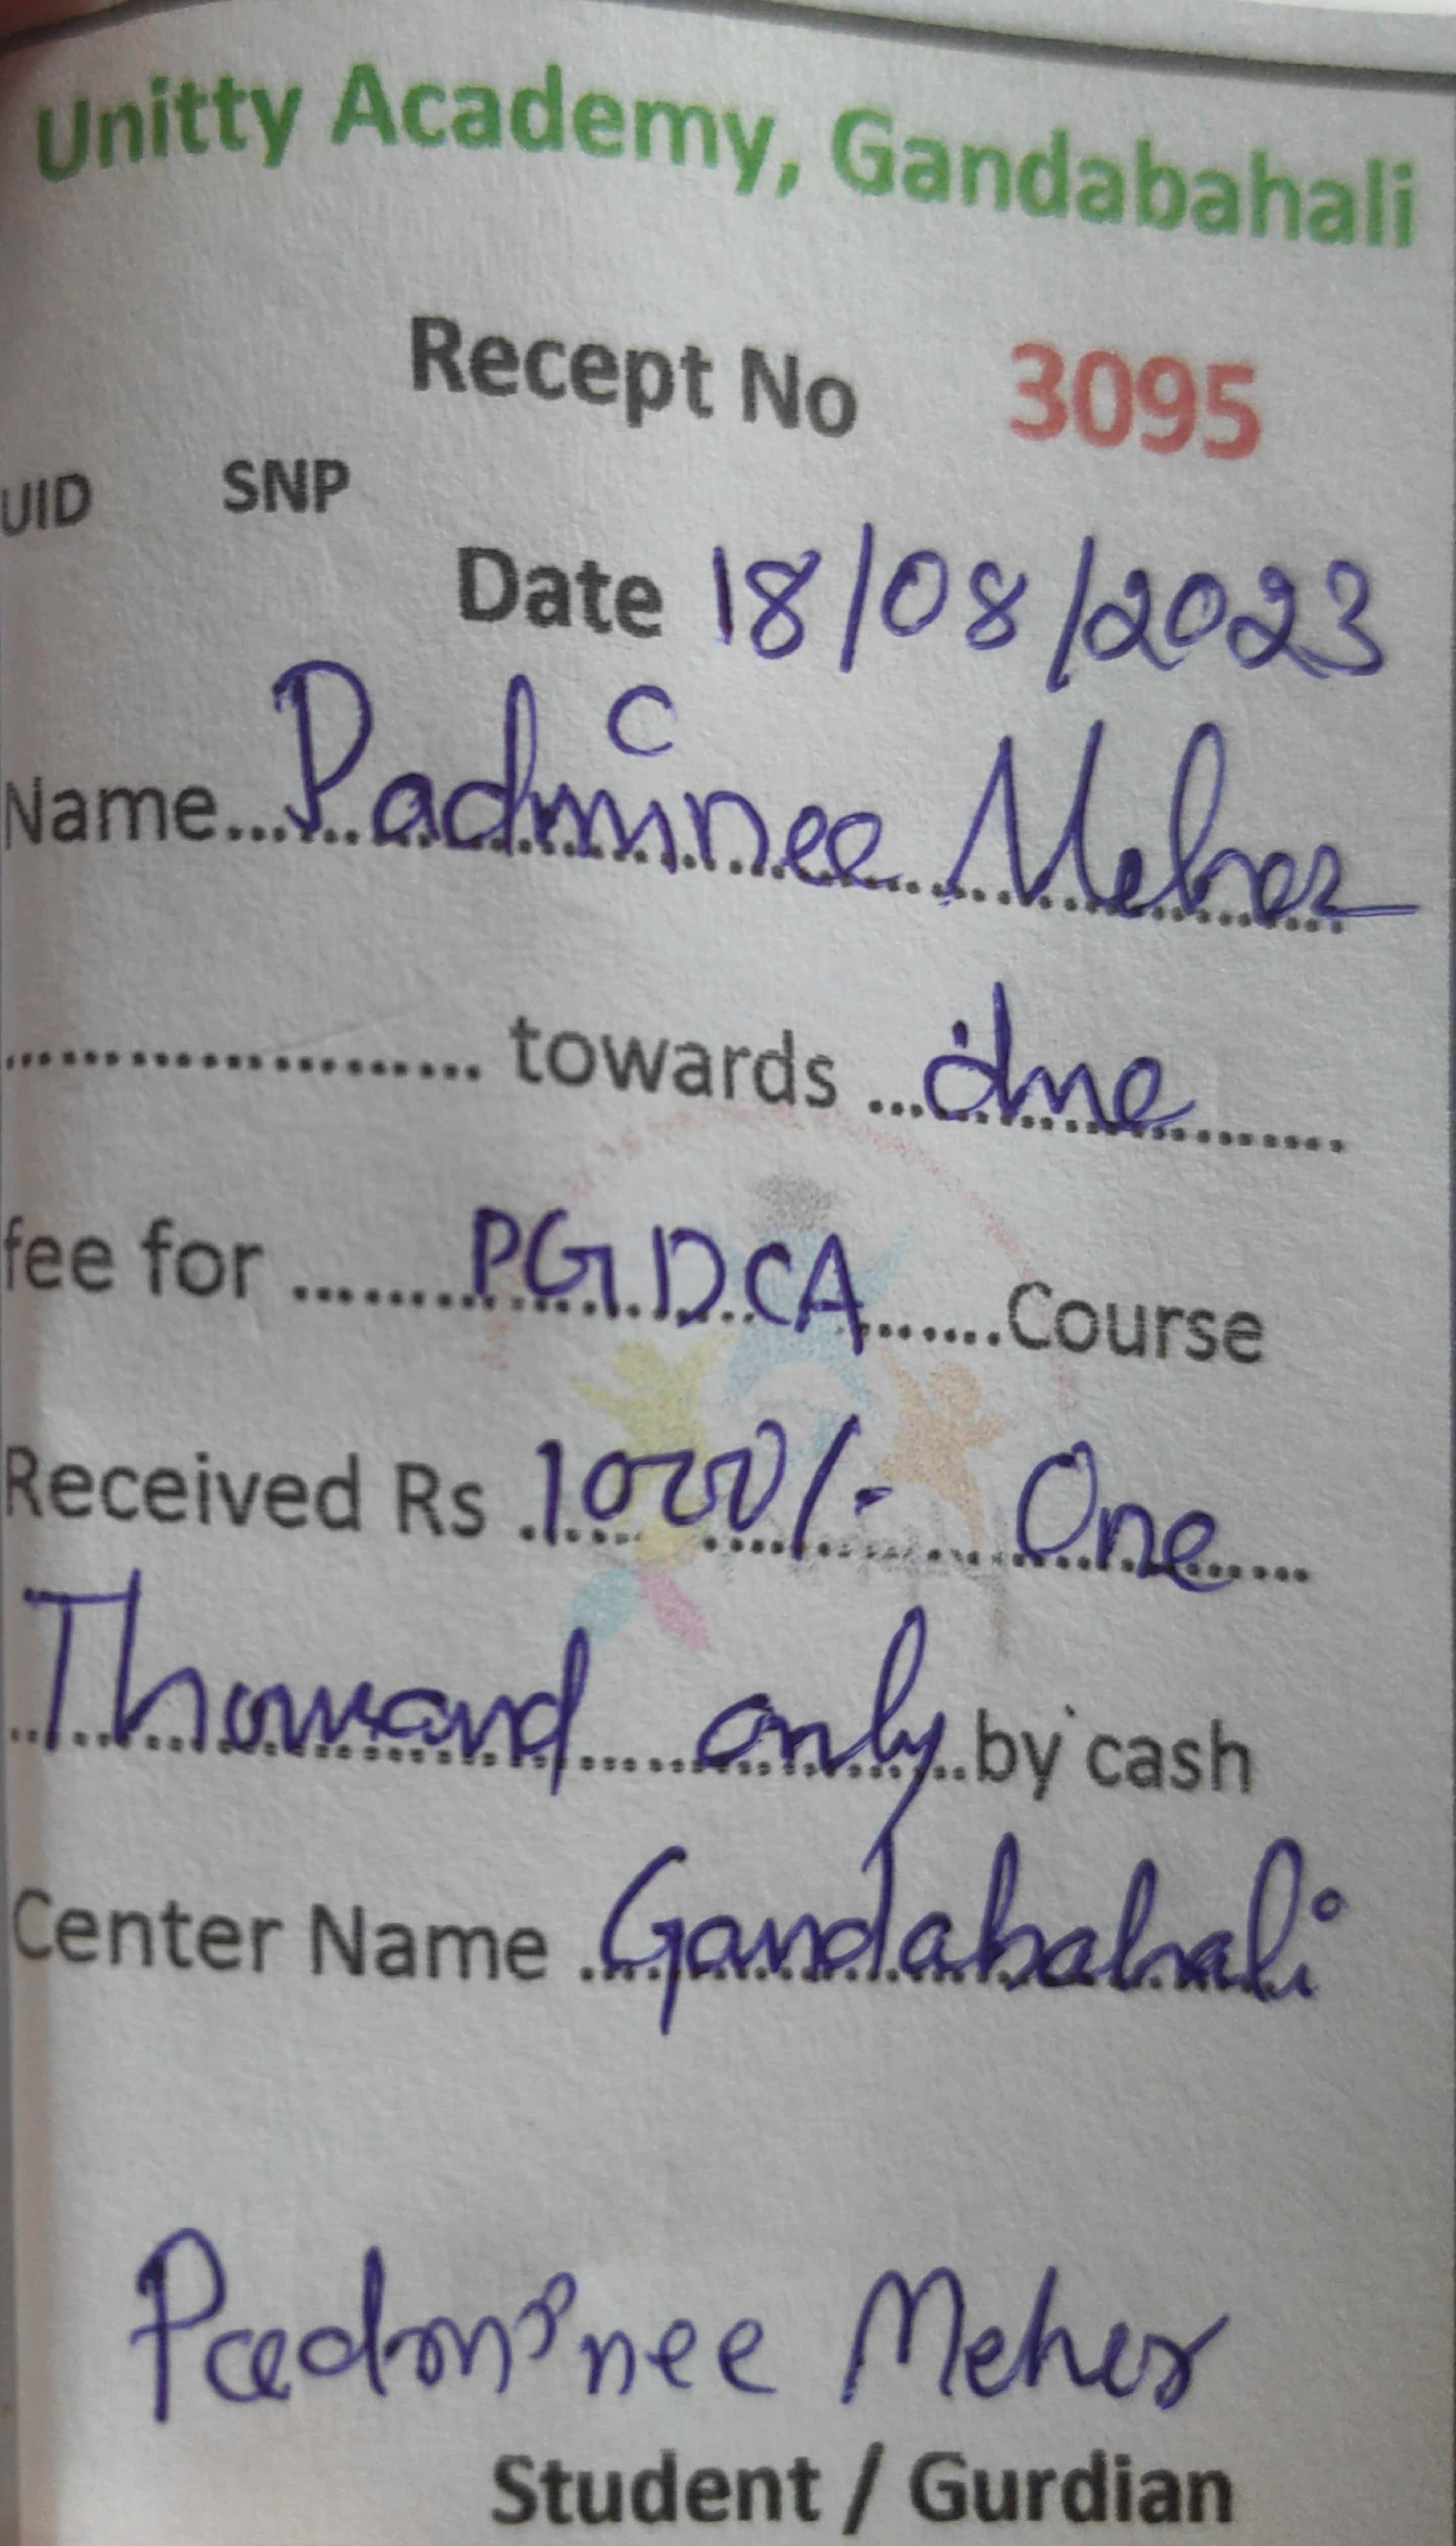 Unitty Academy, Gandabahali
Recept No 3095
UID SNP
Date 18/08/2023
Name...Padminee Meher
.................... towards ...due.........
fee for ........PGDCA.......Course
Received Rs .1000/- One....
..Thousand only..by cash
Center Name .Gandabahali
Padminee Meher
Student / Gurdian